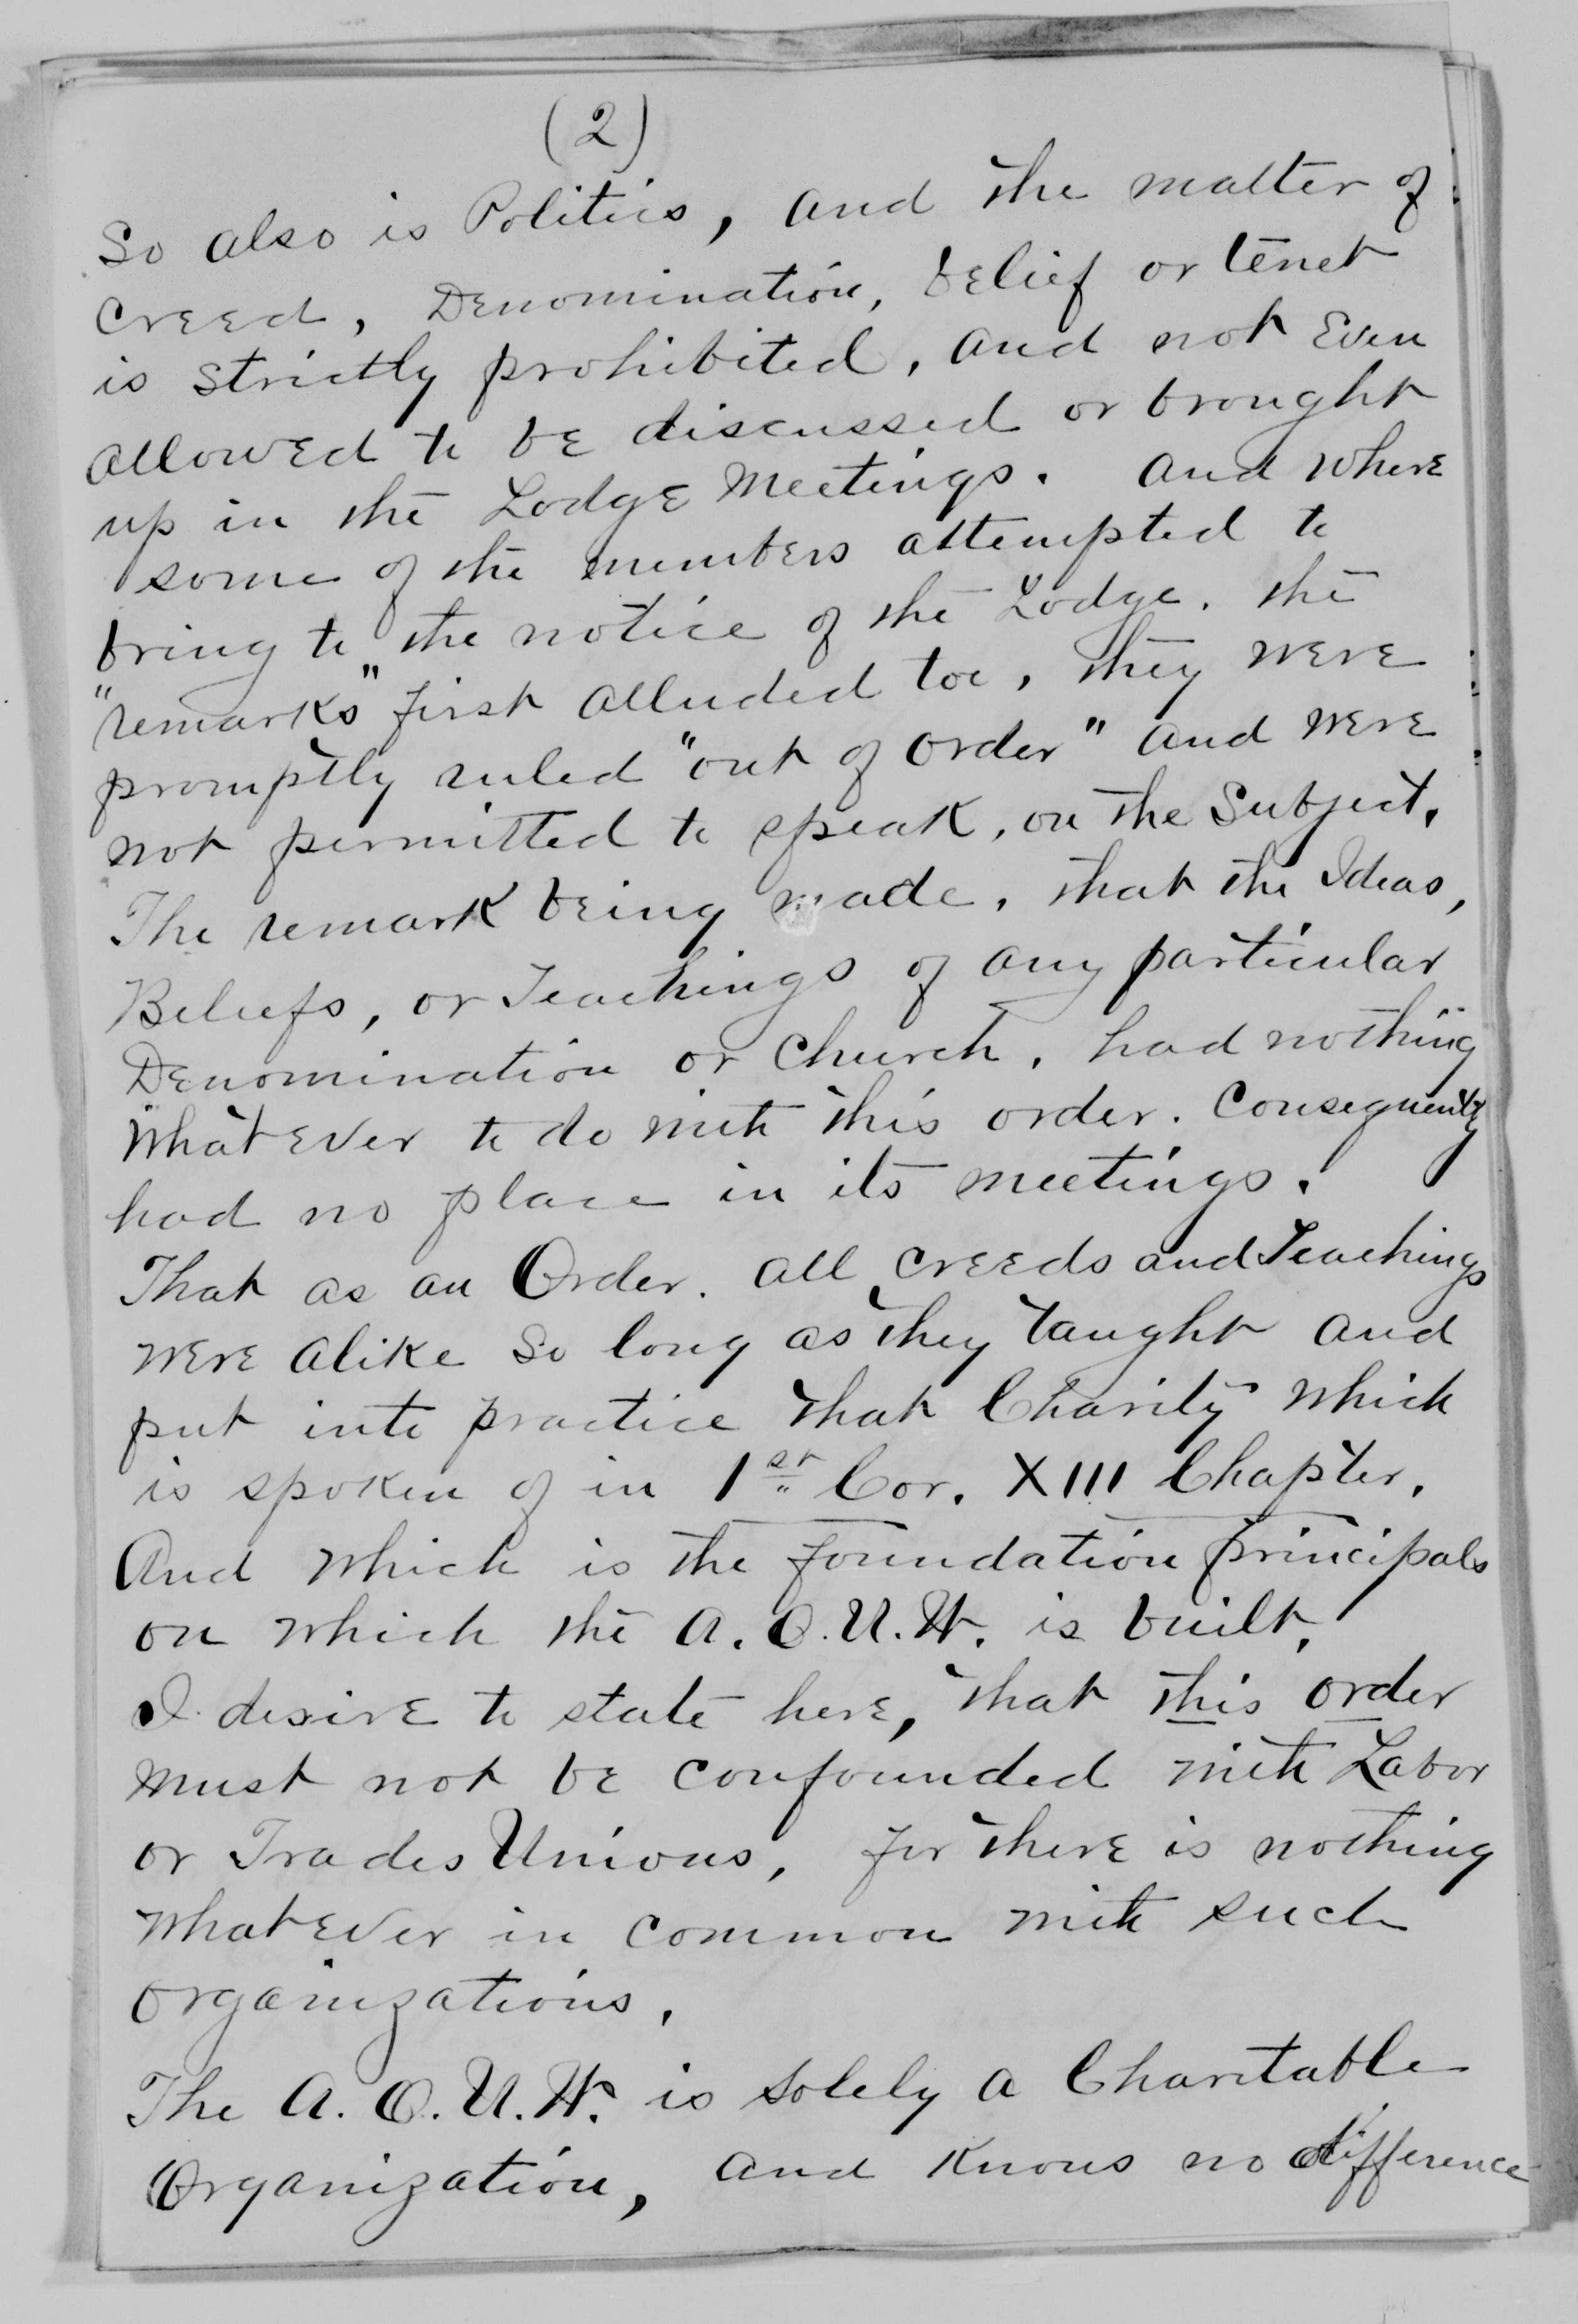 (2)
So also is Politics, and the matter of
Creed, Denomination, belief or tenet
is strictly prohibited, and not Even
allowed to be discussed or brought
up in the Lodge Meetings. and where
some of the members attempted to
bring to the notice of the Lodge. the
"remarks" first alluded toe, they were
promptly ruled "out of order" and were
not permitted to speak, on the Subject.
The remark being made, that the Ideas,
Beliefs, or Teachings of any particular
Denomination or Church, had nothing
whatever to do with this order. Consequently
had no place in its meetings.
That as an Order. all creeds and Teachings
were alike so long as they taught and
put into practice that Charity which
is spoken of in 1st Cor. XIII Chapter.
And which is the foundation principals
on which the A.O.U.W. is built.
I desire to state here, that this order
must not be confounded with Labor
or Trades Unions, for there is nothing
whatever in common with such
organizations.
The A.O.U.W. is solely a Charitable
Organization, and knows no difference